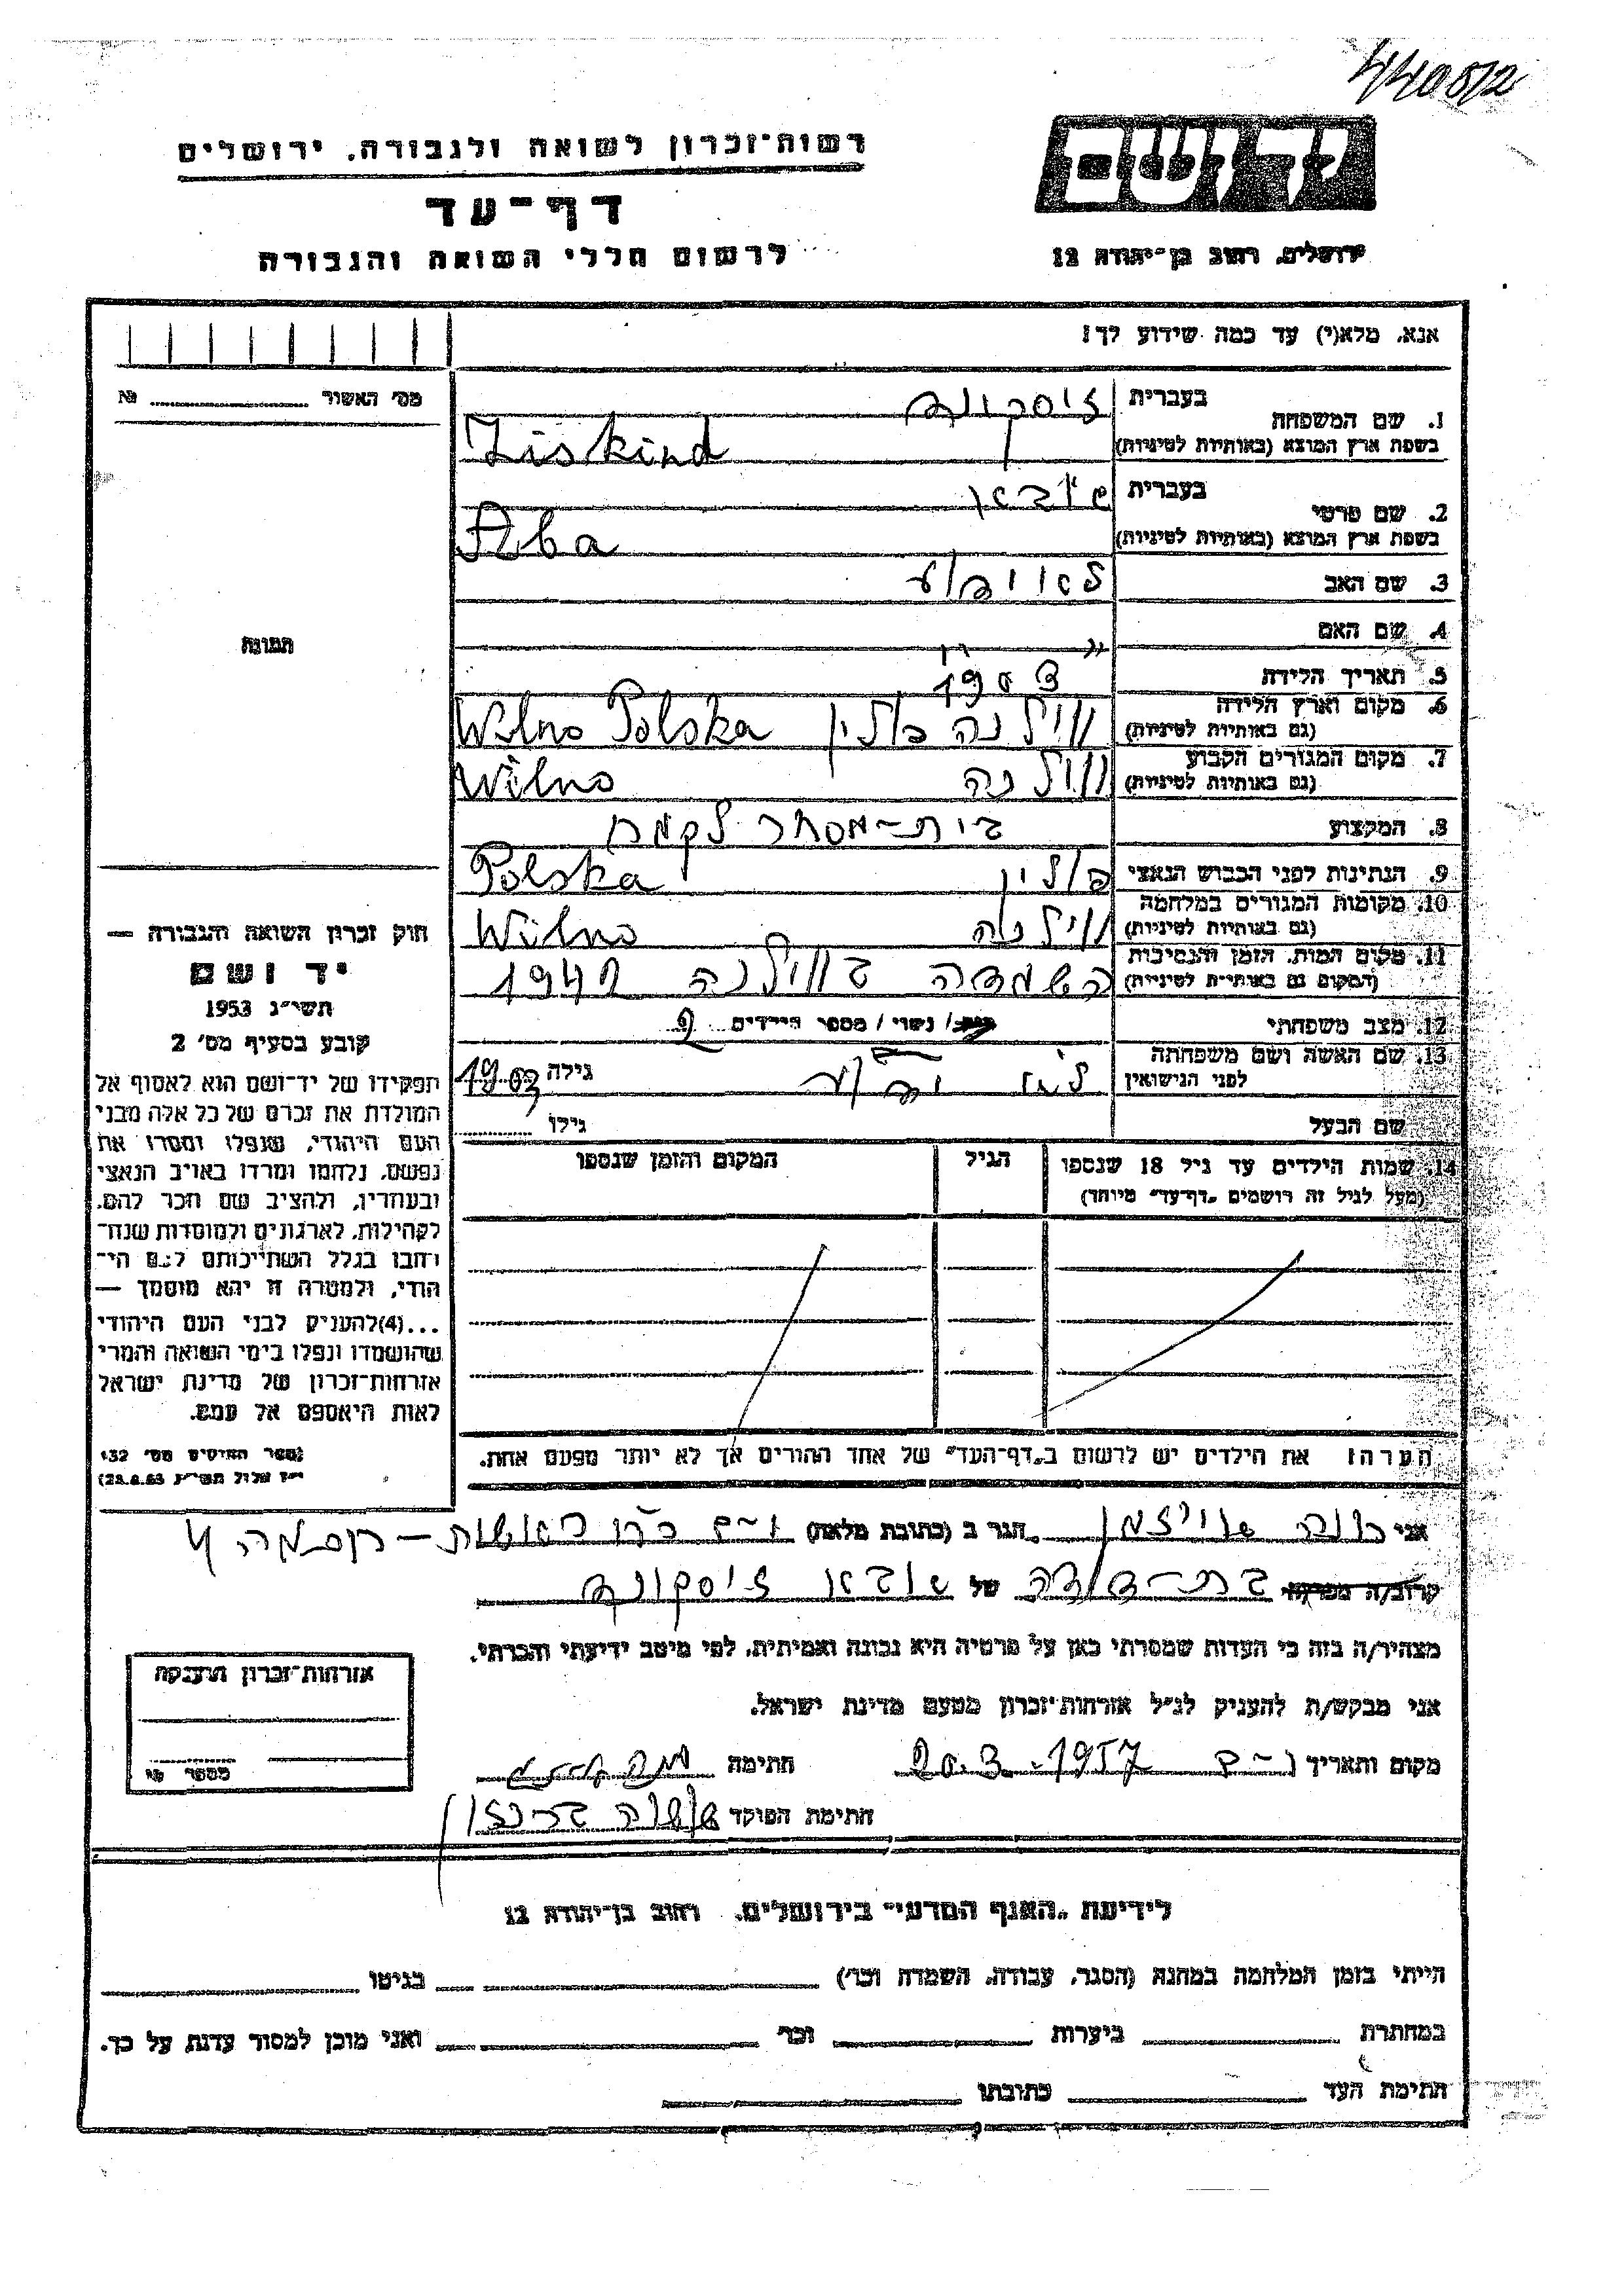 44085/2
רשות־זכרון לשואה ולגבורה. ירושלים
דף־עד
לרשום חללי השואה והגבורה
יד ושם
ירושלים. רחוב בן־יהודה 12
אנא, מלא(י) עד כמה שידוע לך!
מס׳ האשור № 
1. שם המשפחה
בעברית זיסקינד
בשפת ארץ המוצא (באותיות לטיניות) Ziskind
2. שם פרטי
בעברית
בשפת ארץ המוצא (באותיות לטיניות) Aba
3. שם האב
4. שם האם
תמונה
5. תאריך הלידה 1903
6. מקום וארץ הלידה
(גם באותיות לטיניות) וילנה פולין Wilno Polska
7. מקום המגורים הקבוע
(גם באותיות לטיניות) ווילנה Wilno
8. המקצוע בית-מסחר לקמח
9. הנתינות לפני הכבוש הנאצי פולין Polska
10. מקומות המגורים במלחמה
(גם באותיות לטיניות) ווילנה Wilno
11. מקום המות. הזמן והנסיבות
(המקום גם באותיות לטיניות) השמדה בווילנה 1941
12. מצב משפחתי רווק/ נשוי/ מספר הילדים 2
13. שם האשה ושם משפחתה
לפני הנישואין גילה 1903
שם הבעל גילו
14. שמות הילדים עד גיל 18 שנספו
(מעל לגיל זה רושמים „דף־עד״ מיוחד)
הגיל
המקום והזמן שנספו
הערה! את הילדים יש לרשום ב„דף־העד״ של אחד ההורים אך לא יותר מפעם אחת.
חוק זכרון השואה והגבורה —
יד ושם
תשי״ג 1953
קובע בסעיף מס׳ 2
תפקידו של יד־ושם הוא לאסוף אל
המולדת את זכרם של כל אלה מבני
העם היהודי, שנפלו ומסרו את
נפשם, נלחמו ומרדו באויב הנאצי
ובעוזריו, ולהציב שם וזכר להם,
לקהילות, לארגונים ולמוסדות שנח־
רחבו בגלל השתייכותם לעם הי־
הודי, ולמטרה זו יהא מוסמך —
...(4)להעניק לבני העם היהודי
שהושמדו ונפלו בימי השואה והמרי
אזרחות־זכרון של מדינת ישראל
לאות היאספם אל עמם.
(ספר החוקים מס׳ 132
י״ז אלול תשי״ג 28.8.53)
אני הגר ב (כתובת מלאה)
קרוב/ה מכר/ה בת-דודה של אבא זיסקינד
מצהיר/ה בזה כי העדות שמסרתי כאן על פרטיה היא נכונה ואמיתית, לפי מיטב ידיעתי והכרתי.
אני מבקש/ת להעניק לנ״ל אזרחות־זכרון מטעם מדינת ישראל.
מקום ותאריך 20.3.1957 חתימה
חתימת הפוקד
אזרחות־זכרון הוענקה
מספר
לידיעת „האגף המדעי״ בירושלים, רחוב בן־יהודה 12
הייתי בזמן המלחמה במחנה (הסגר, עבודה, השמדה וכו׳) בגיטו
במחתרת ביערות וכו׳ ואני מוכן למסור עדות על כך.
חתימת העד כתובתו